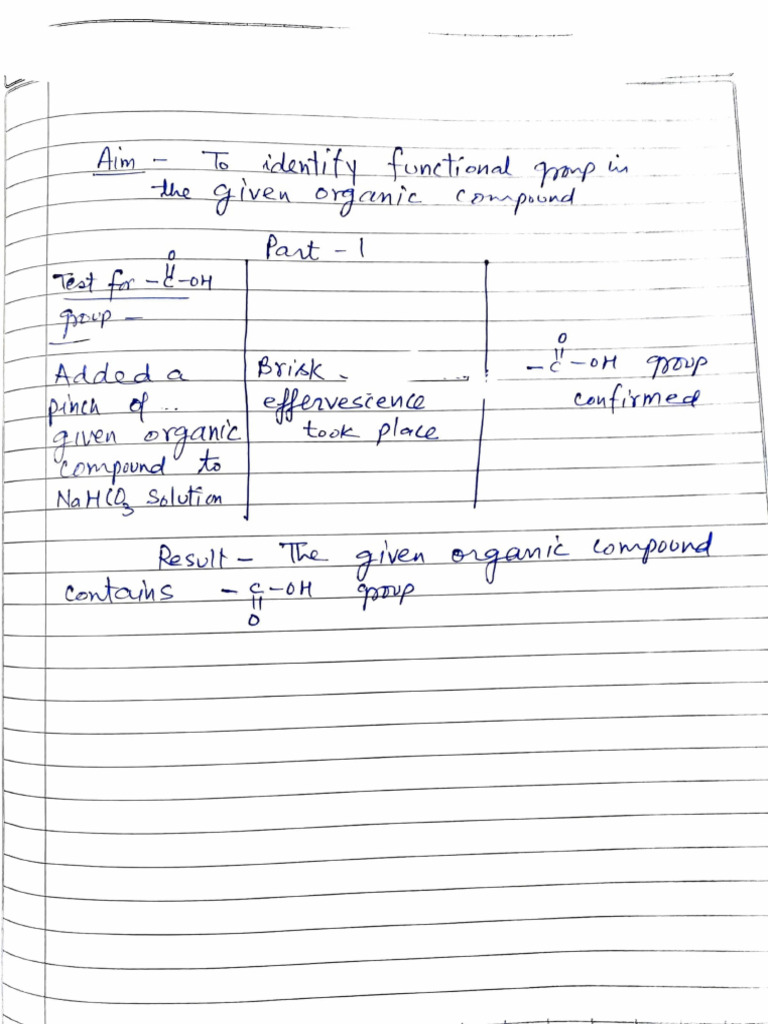 Aim - To identify functional group in
the given organic compound
Part - 1
O
Test for -C-OH
group -
Added a
pinch of ..
given organic
compound to
NaHCO3 Solution
Brisk
effervescence
took place
O
-C-OH group
confirmed
Result - The given organic compound
contains -C-OH group
O